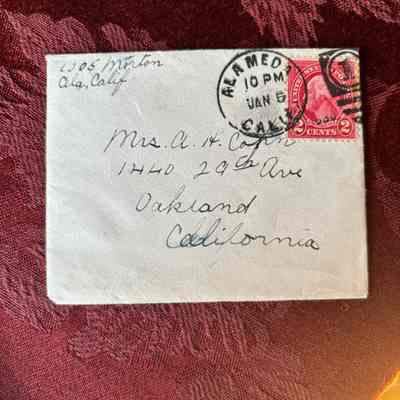 1205 Morton
Ala, Calif
ALAMEDA
10 PM
JAN 5
CALIF
UNITED STATES
2 CENTS 2
Mrs. A. H.
1440 29th Ave
Oakland
California